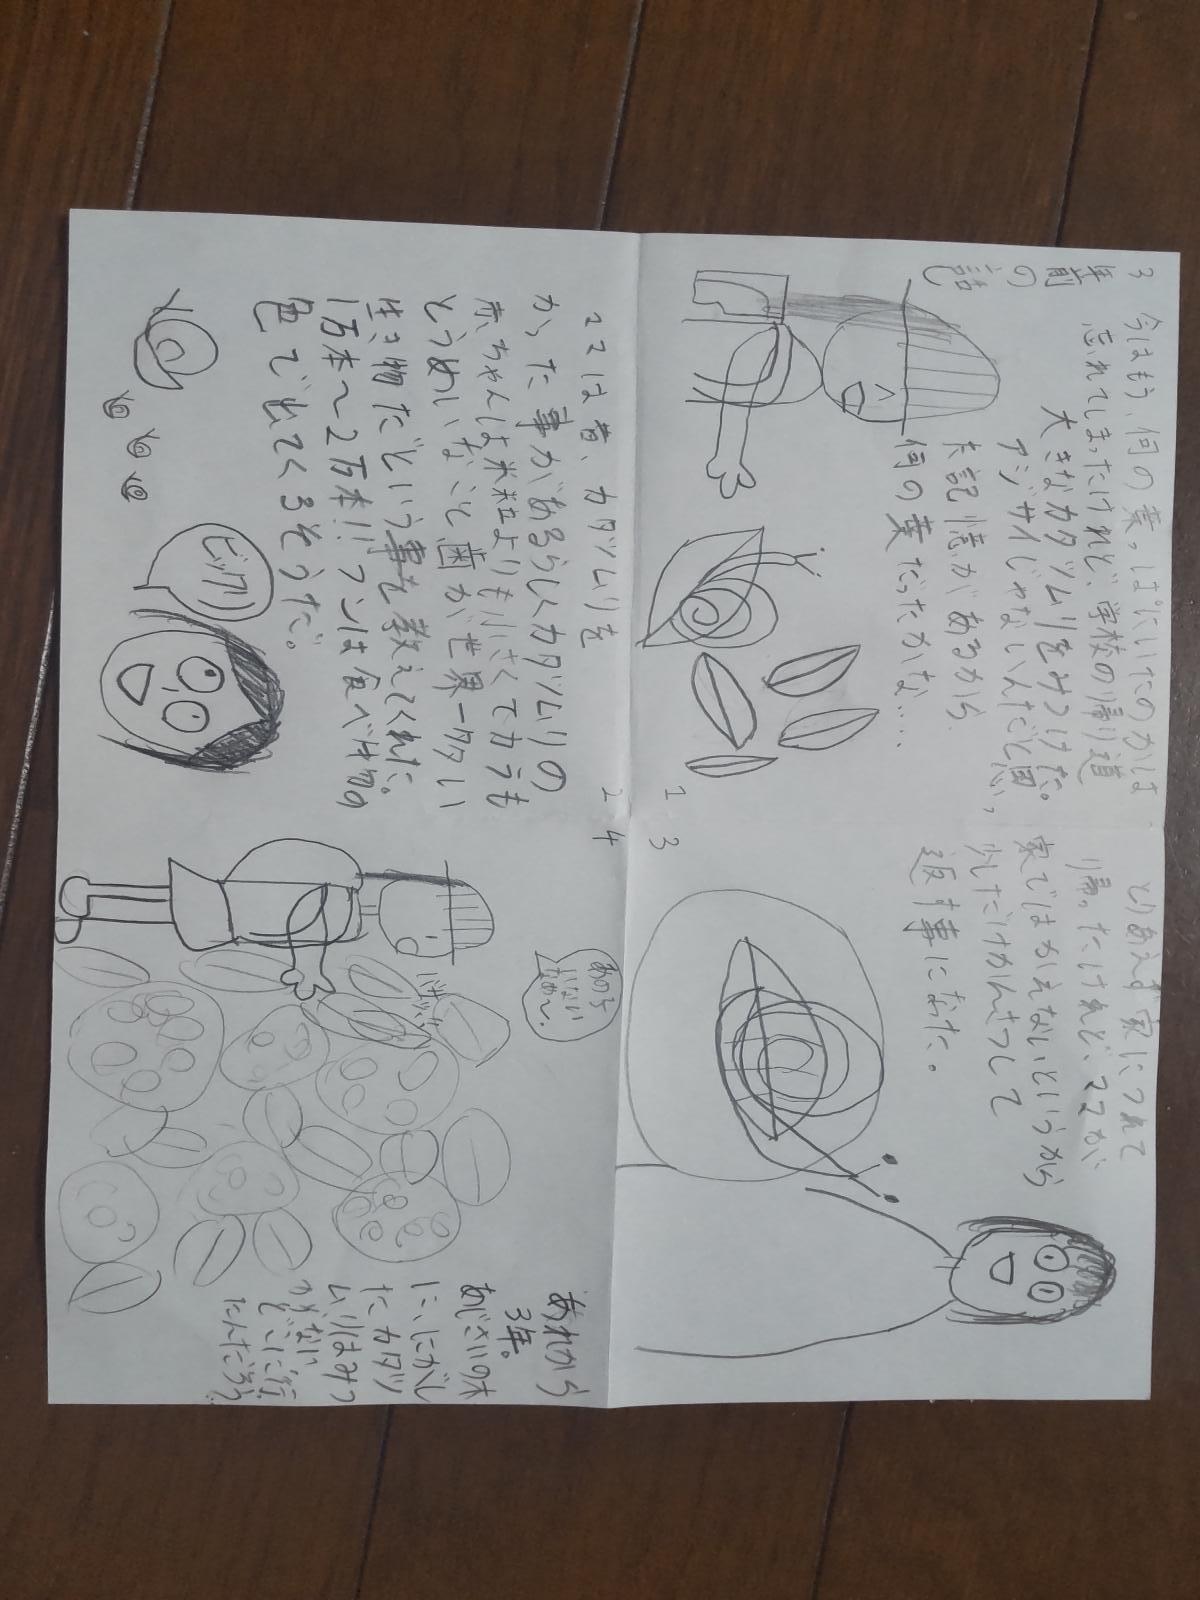 3
年前
の
話
今はもう、何の葉っぱにいたのかは
忘れてしまったけれど、学校の帰り道
大きなカタツムリをみつけた。
アジサイじゃないんだと思っ
た記憶があるから
何の葉だったかな‥‥
1
ママは昔、カタツムリを
かった事があるらしくカタツムリの
赤ちゃんは米粒よりも小さくてカラも
とうめいなこと歯が世界一多い
生き物だという事を教えてくれた。
1万本〜2万本!! フンは食べ物の
色で出てくるそうだ。
ビックリ
2
3
とりあえず家につれて
帰ったけれど、ママが
家ではかえないというから
少しだけかんさつして
返す事になった。
4
あの子
いない
なぁ〜。
あれから
3年。
あじさいの木
に、にがし
たカタツ
ムリはみつ
からない
どこに行
ったんだろう